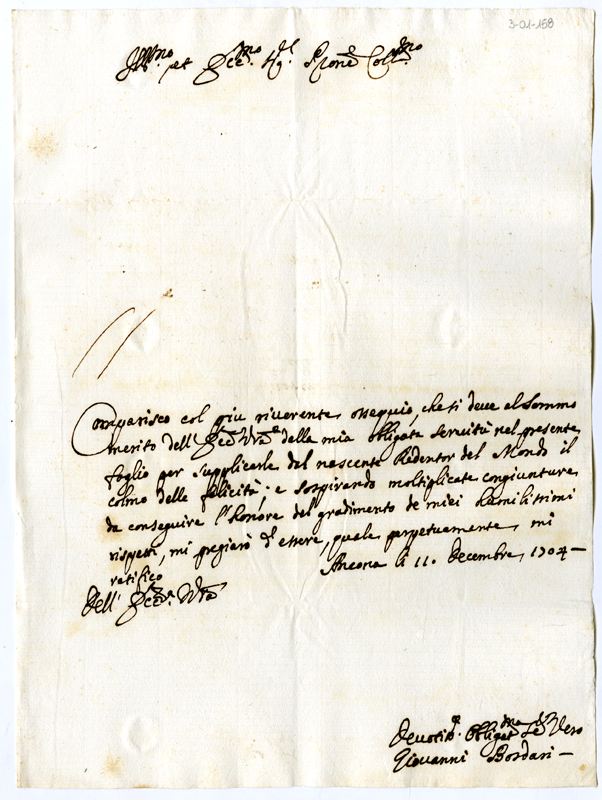 3-01-158
Ill.mo et Ecc.mo Sig.r P.rone Coll.mo
Comparisco col più riverente ossequio, che si deve al sommo
merito dell' Ecc.a V.ra della mia obligata servitù nel presente
foglio per supplicarle dal nascente Redentor del Mondo il
colmo delle felicità; e sospirando moltiplicate congiunture
da conseguire l'honore del gradimento de miei humilissimi
rispetti, mi pregiarò d'essere, quale perpetuamente mi
ratifico
Ancona li 11. Decembre 1704 —
Dell' Ecc.a V.ra
Devotis.o Obligat.mo Se.re Vero
Giovanni Bordari —